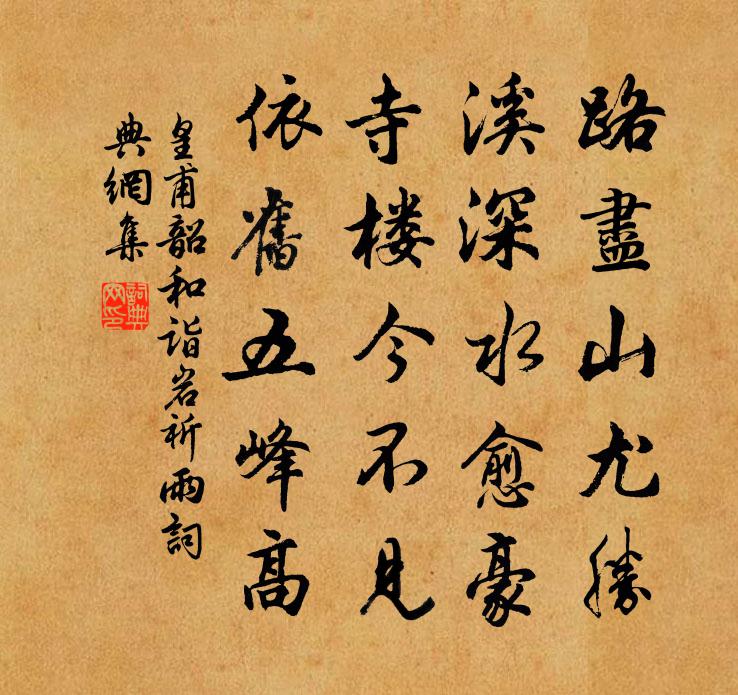 路盡山尤勝
溪深水愈豪
寺楼今不見
依舊五峰高
皇甫韶和詣岩祈雨詞
典網集
詞典網印